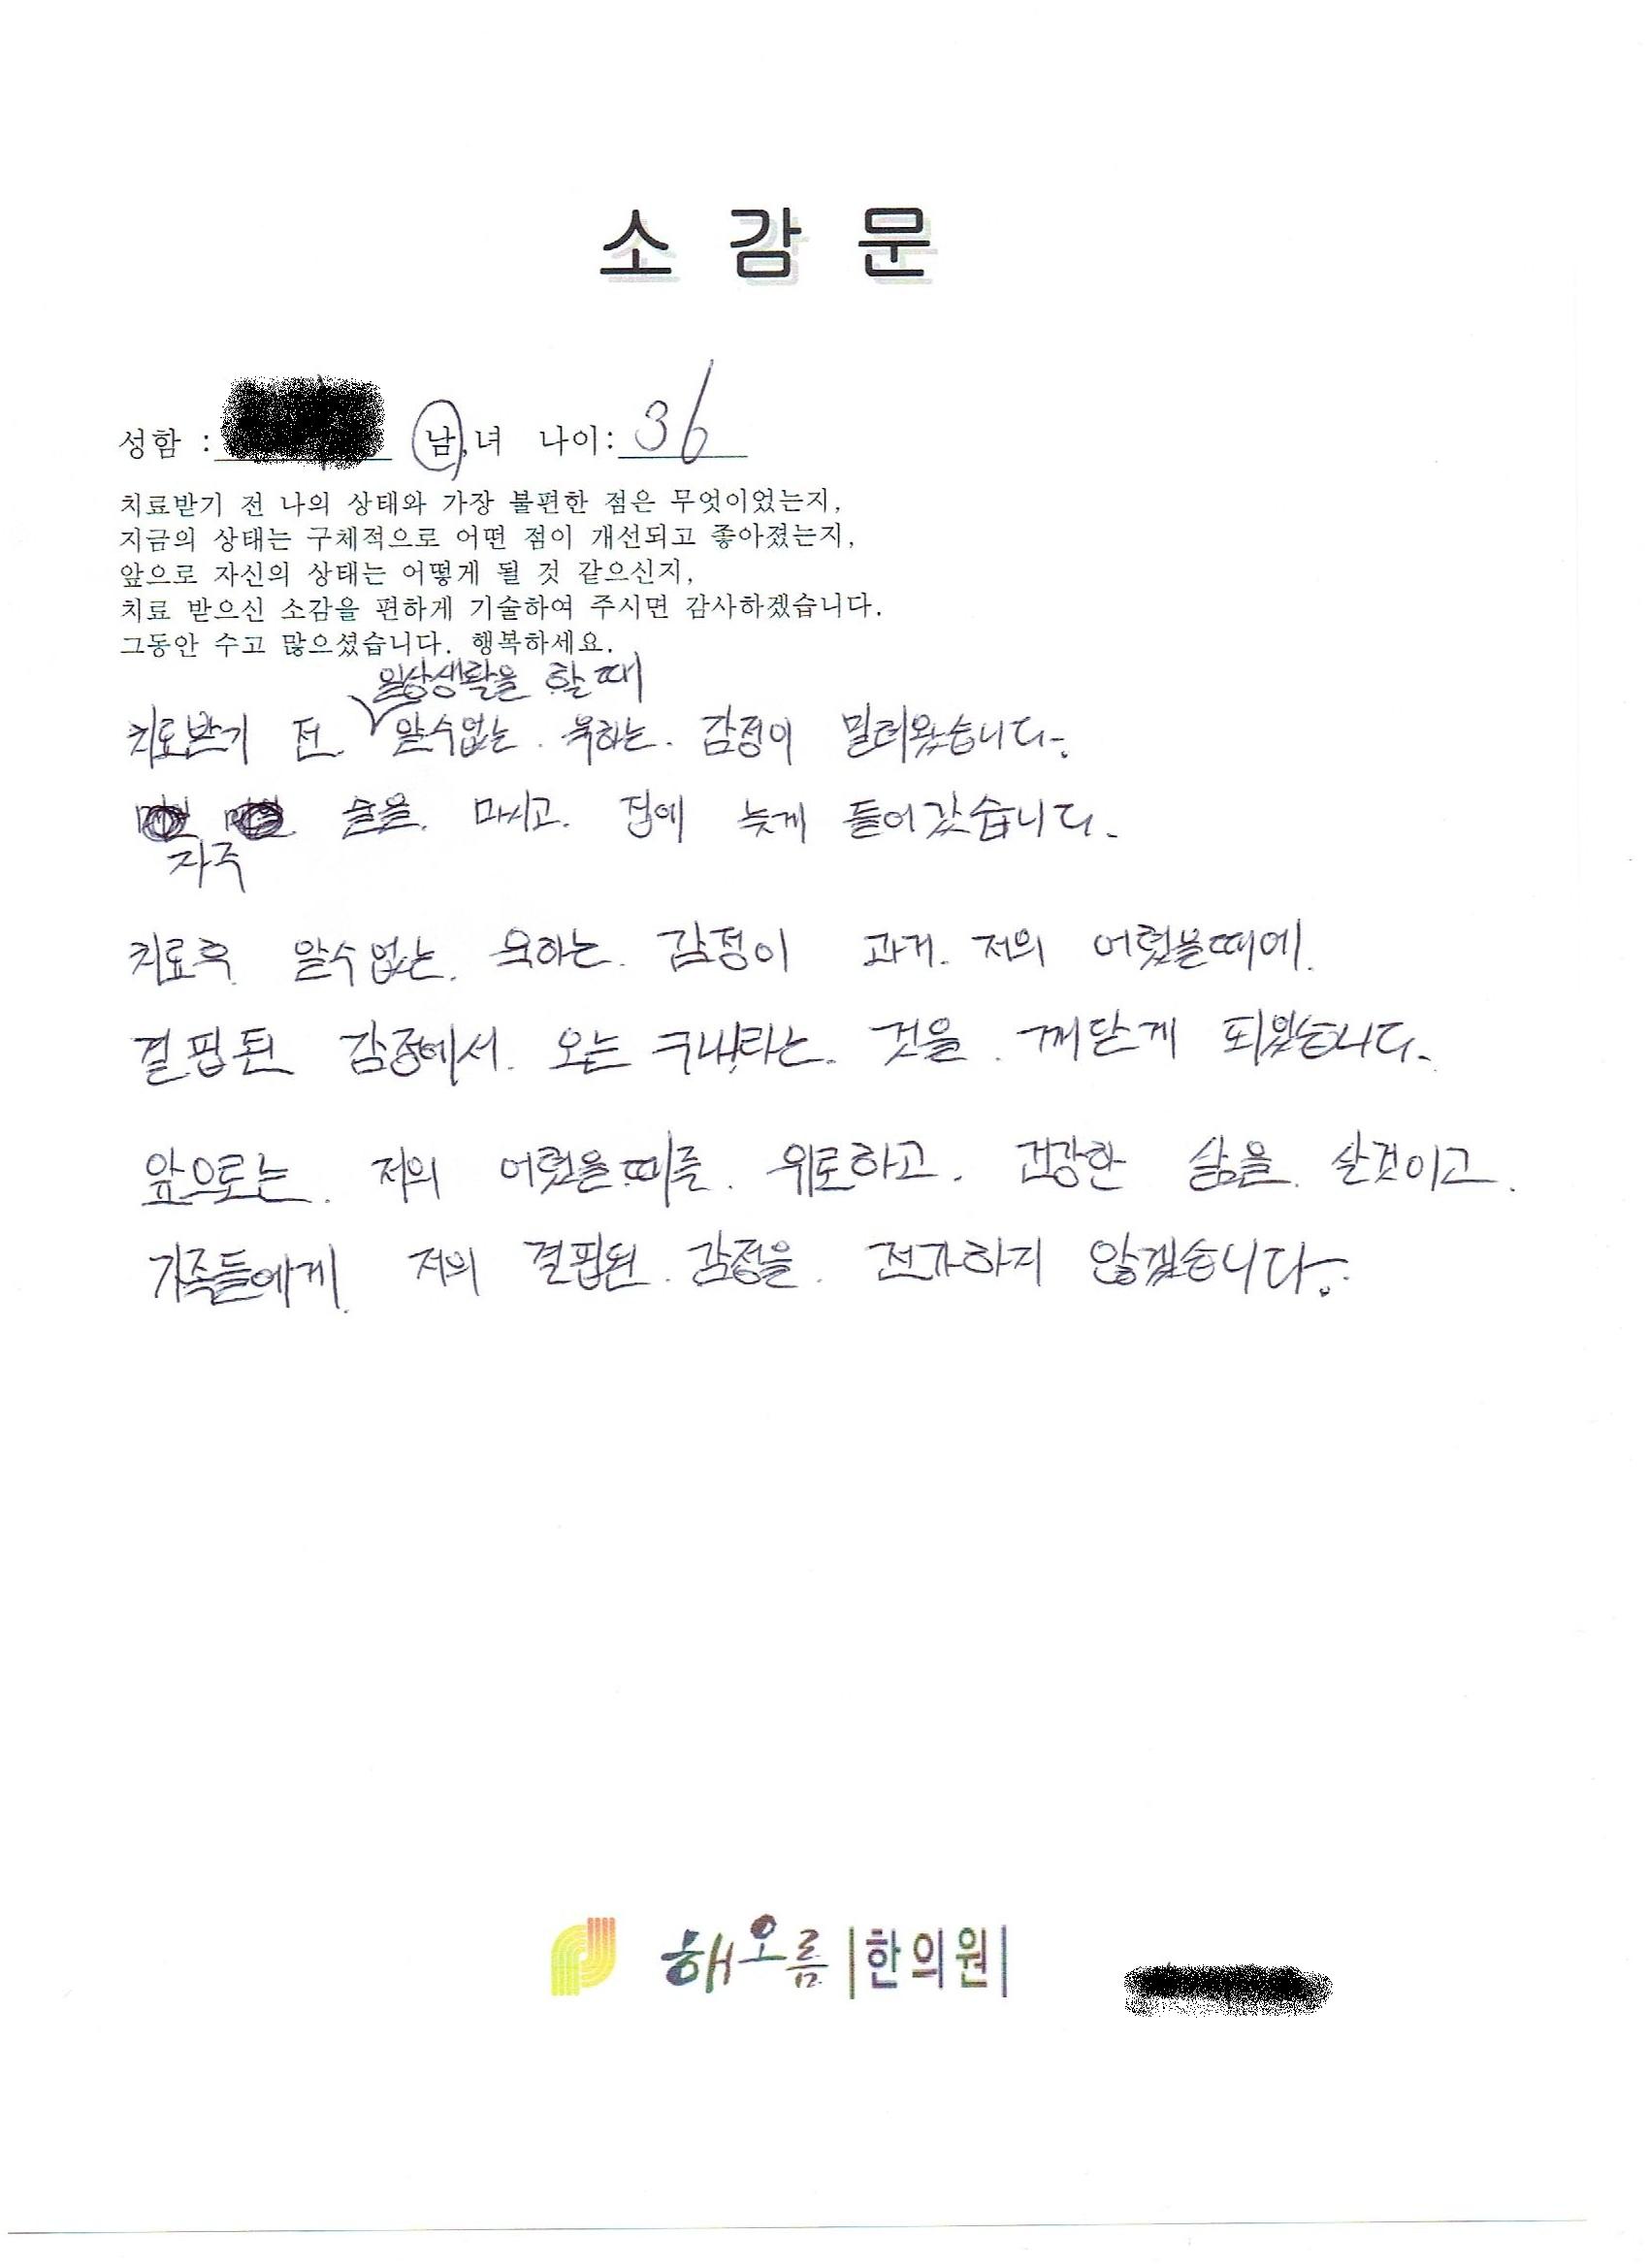 소 감 문
성함 : 남,녀 나이: 36
치료받기 전 나의 상태와 가장 불편한 점은 무엇이었는지,
지금의 상태는 구체적으로 어떤 점이 개선되고 좋아졌는지,
앞으로 자신의 상태는 어떻게 될 것 같으신지,
치료 받으신 소감을 편하게 기술하여 주시면 감사하겠습니다.
그동안 수고 많으셨습니다. 행복하세요.
일상생활을 할 때
치료받기 전. 알수없는. 욱하는. 감정이 밀려왔습니다.
술을. 마시고. 집에 늦게 들어갔습니다.
자주
치료후 알수없는. 욱하는. 감정이 과거. 저의 어렸을때에.
결핍된 감정에서. 오는 구나!라는. 것을. 깨닫게 되었습니다.
앞으로는. 저의 어렸을때를. 위로하고. 건강한 삶을. 살것이고.
가족들에게. 저의 결핍된. 감정을. 전가하지 않겠습니다.
해오름 한의원